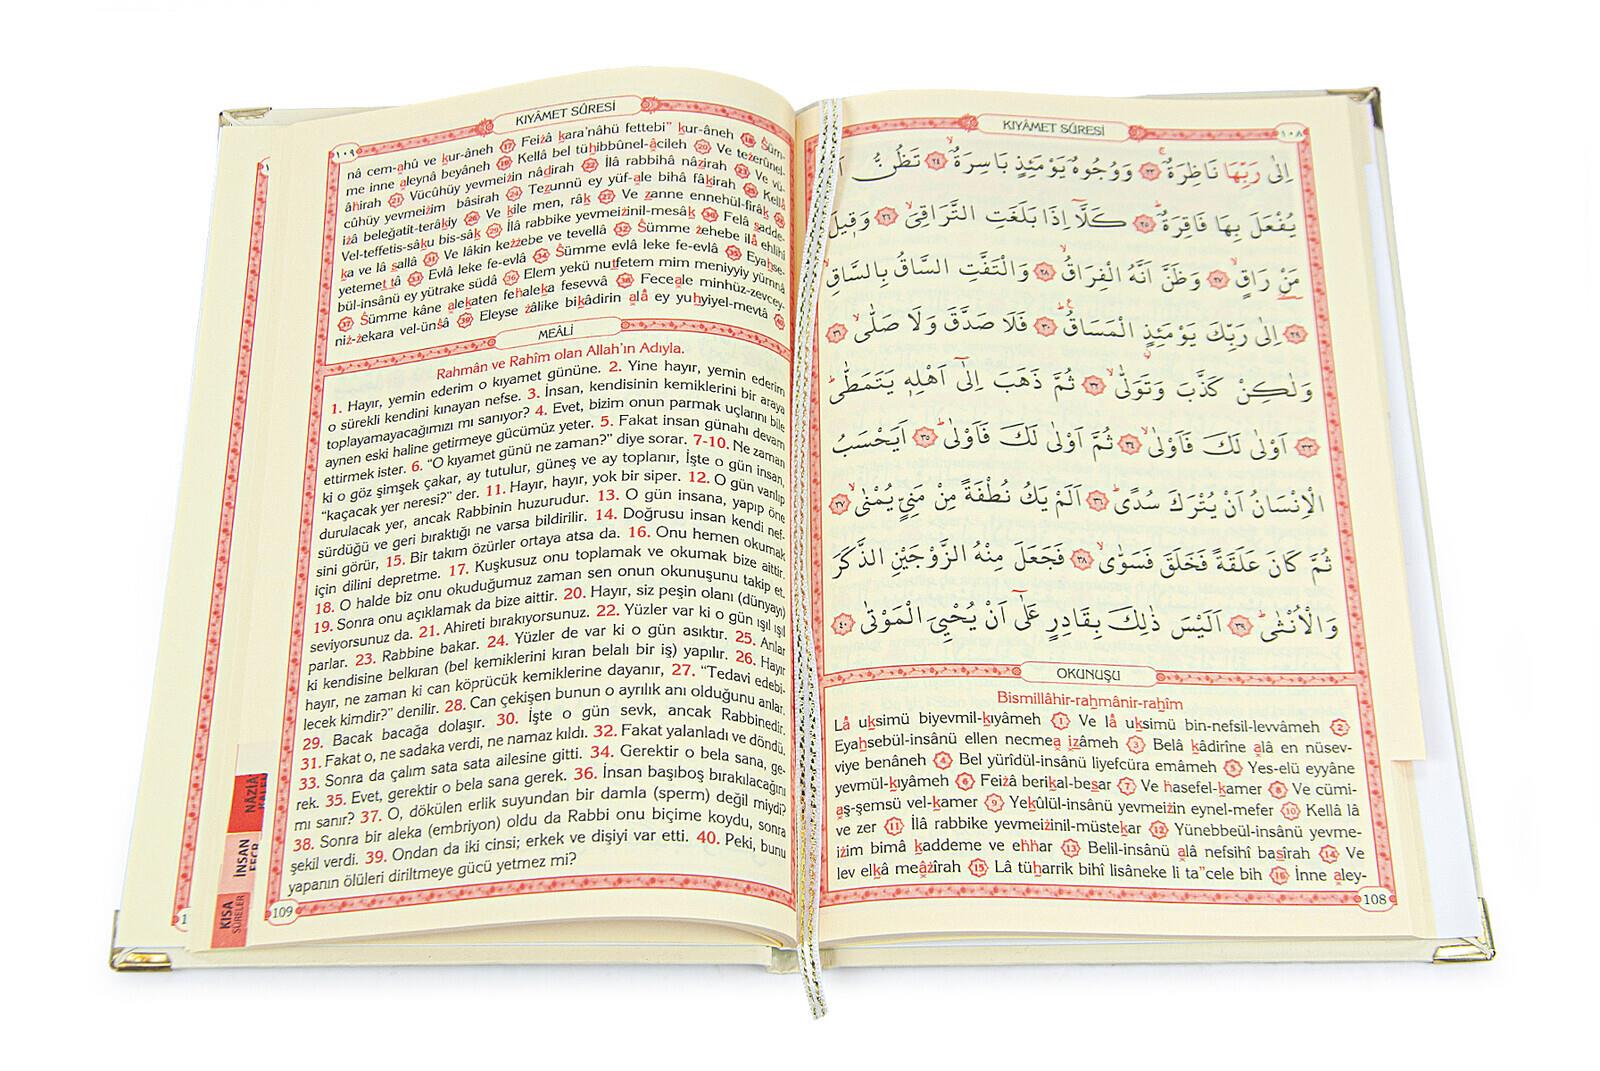 KIYÂMET SÛRESİ
١٠٨
اِلٰى رَبِّهَا نَاظِرَةٌ ٢٣ وَوُجُوهٌ يَوْمَئِذٍ بَاسِرَةٌ ٢٤ تَظُنُّ
يُفْعَلَ بِهَا فَاقِرَةٌ ٢٥ كَلَّٓا اِذَا بَلَغَتِ التَّرَاقِيَ ٢٦ وَقِيلَ
مَنْ رَاقٍ ٢٧ وَظَنَّ اَنَّهُ الْفِرَاقُ ٢٨ وَالْتَفَّتِ السَّاقُ بِالسَّاقِ
٢٩ اِلٰى رَبِّكَ يَوْمَئِذٍ الْمَسَاقُ ٣٠ فَلَا صَدَّقَ وَلَا صَلّٰى ٣١
وَلٰكِنْ كَذَّبَ وَتَوَلّٰى ٣٢ ثُمَّ ذَهَبَ اِلٰٓى اَهْلِهٖ يَتَمَطّٰى
٣٣ اَوْلٰى لَكَ فَاَوْلٰى ٣٤ ثُمَّ اَوْلٰى لَكَ فَاَوْلٰى ٣٥ اَيَحْسَبُ
الْاِنْسَانُ اَنْ يُتْرَكَ سُدًى ٣٦ اَلَمْ يَكُ نُطْفَةً مِنْ مَنِيٍّ يُمْنٰى ٣٧
ثُمَّ كَانَ عَلَقَةً فَخَلَقَ فَسَوّٰى ٣٨ فَجَعَلَ مِنْهُ الزَّوْجَيْنِ الذَّكَرَ
وَالْاُنْثٰى ٣٩ اَلَيْسَ ذٰلِكَ بِقَادِرٍ عَلٰٓى اَنْ يُحْيِيَ الْمَوْتٰى ٤٠
OKUNUŞU
Bismillâhir-rahmânir-rahîm
Lâ uksimü biyevmil-kıyâmeh 1 Ve lâ uksimü bin-nefsil-levvâmeh 2
Eyahsebül-insânü ellen necmea izâmeh 3 Belâ kâdirîne alâ en nüsev-
viye benâneh 4 Bel yürîdül-insânü liyefcüra emâmeh 5 Yes-elü eyyâne
yevmül-kıyâmeh 6 Feiżâ berikal-besar 7 Ve hasefel-kamer 8 Ve cümi-
aş-şemsü vel-kamer 9 Yekûlül-insânü yevmeiżin eynel-mefer 10 Kellâ lâ
ve zer 11 İlâ rabbike yevmeiżinil-müstekar 12 Yünebbeül-insânü yevme-
iżim bimâ kaddeme ve ehhar 13 Belil-insânü alâ nefsihî basîrah 14 Ve
lev elkâ meâżîrah 15 Lâ tüharrik bihî lisâneke li ta"cele bih 16 İnne aley-
108
KIYÂMET SÛRESİ
١٠٩
nâ cem-ahû ve kur-âneh 17 Feiżâ kara'nâhü fettebi" kur-âneh 18 Śüm-
me inne aleynâ beyâneh 19 Kellâ bel tühibbûnel-âcileh 20 Ve teżerûnel-
âhirah 21 Vücûhüy yevmeiżin nâdirah 22 İlâ rabbihâ nâzirah 23 Ve vü-
cûhüy yevmeiżim bâsirah 24 Tezunnü ey yüf-ale bihâ fâkirah 25 Kellâ
iżâ beleğatit-terâkiy 26 Ve kîle men, râk 27 Ve zanne ennehül-firâk 28
Vel-teffetis-sâku bis-sâk 29 İlâ rabbike yevmeiżinil-mesâk 30 Felâ sadde-
ka ve lâ sallâ 31 Ve lâkin keżżebe ve tevellâ 32 Śümme żehebe ilâ ehlihî
yetemettâ 33 Evlâ leke fe-evlâ 34 Śümme evlâ leke fe-evlâ 35 Eyahse-
bül-insânü ey yütrake südâ 36 Elem yekü nutfetem mim meniyyiy yümnâ
37 Śümme kâne alekaten fehaleka fesevvâ 38 Feceale minhüz-zevcey-
niż-żekara vel-ünśâ 39 Eleyse żâlike bikâdirin alâ ey yuhyiyel-mevtâ 40
MEÂLİ
Rahmân ve Rahîm olan Allah'ın Adıyla.
1. Hayır, yemin ederim o kıyamet gününe. 2. Yine hayır, yemin ederim
o sürekli kendini kınayan nefse. 3. İnsan, kendisinin kemiklerini bir araya
toplayamayacağımızı mı sanıyor? 4. Evet, bizim onun parmak uçlarını bile
aynen eski haline getirmeye gücümüz yeter. 5. Fakat insan günahı devam
ettirmek ister. 6. "O kıyamet günü ne zaman?" diye sorar. 7-10. Ne zaman
ki o göz şimşek çakar, ay tutulur, güneş ve ay toplanır, İşte o gün insan,
"kaçacak yer neresi?" der. 11. Hayır, hayır, yok bir siper. 12. O gün varılıp
durulacak yer, ancak Rabbinin huzurudur. 13. O gün insana, yapıp öne
sürdüğü ve geri bıraktığı ne varsa bildirilir. 14. Doğrusu insan kendi nef-
sini görür, 15. Bir takım özürler ortaya atsa da. 16. Onu hemen okumak
için dilini depretme. 17. Kuşkusuz onu toplamak ve okumak bize aittir.
18. O halde biz onu okuduğumuz zaman sen onun okunuşunu takip et.
19. Sonra onu açıklamak da bize aittir. 20. Hayır, siz peşin olanı (dünyayı)
seviyorsunuz da. 21. Ahireti bırakıyorsunuz. 22. Yüzler var ki o gün ışıl ışıl
parlar. 23. Rabbine bakar. 24. Yüzler de var ki o gün asıktır. 25. Anlar
ki kendisine belkıran (bel kemiklerini kıran belalı bir iş) yapılır. 26. Hayır
hayır, ne zaman ki can köprücük kemiklerine dayanır, 27. "Tedavi edebi-
lecek kimdir?" denilir. 28. Can çekişen bunun o ayrılık anı olduğunu anlar.
29. Bacak bacağa dolaşır. 30. İşte o gün sevk, ancak Rabbinedir.
31. Fakat o, ne sadaka verdi, ne namaz kıldı. 32. Fakat yalanladı ve döndü,
33. Sonra da çalım sata sata ailesine gitti. 34. Gerektir o bela sana, ge-
rek. 35. Evet, gerektir o bela sana gerek. 36. İnsan başıboş bırakılacağını
mı sanır? 37. O, dökülen erlik suyundan bir damla (sperm) değil miydi?
38. Sonra bir aleka (embriyon) oldu da Rabbi onu biçime koydu, sonra
şekil verdi. 39. Ondan da iki cinsi; erkek ve dişiyi var etti. 40. Peki, bunu
yapanın ölüleri diriltmeye gücü yetmez mi?
109
İNSAN
KISA
SÛRELER